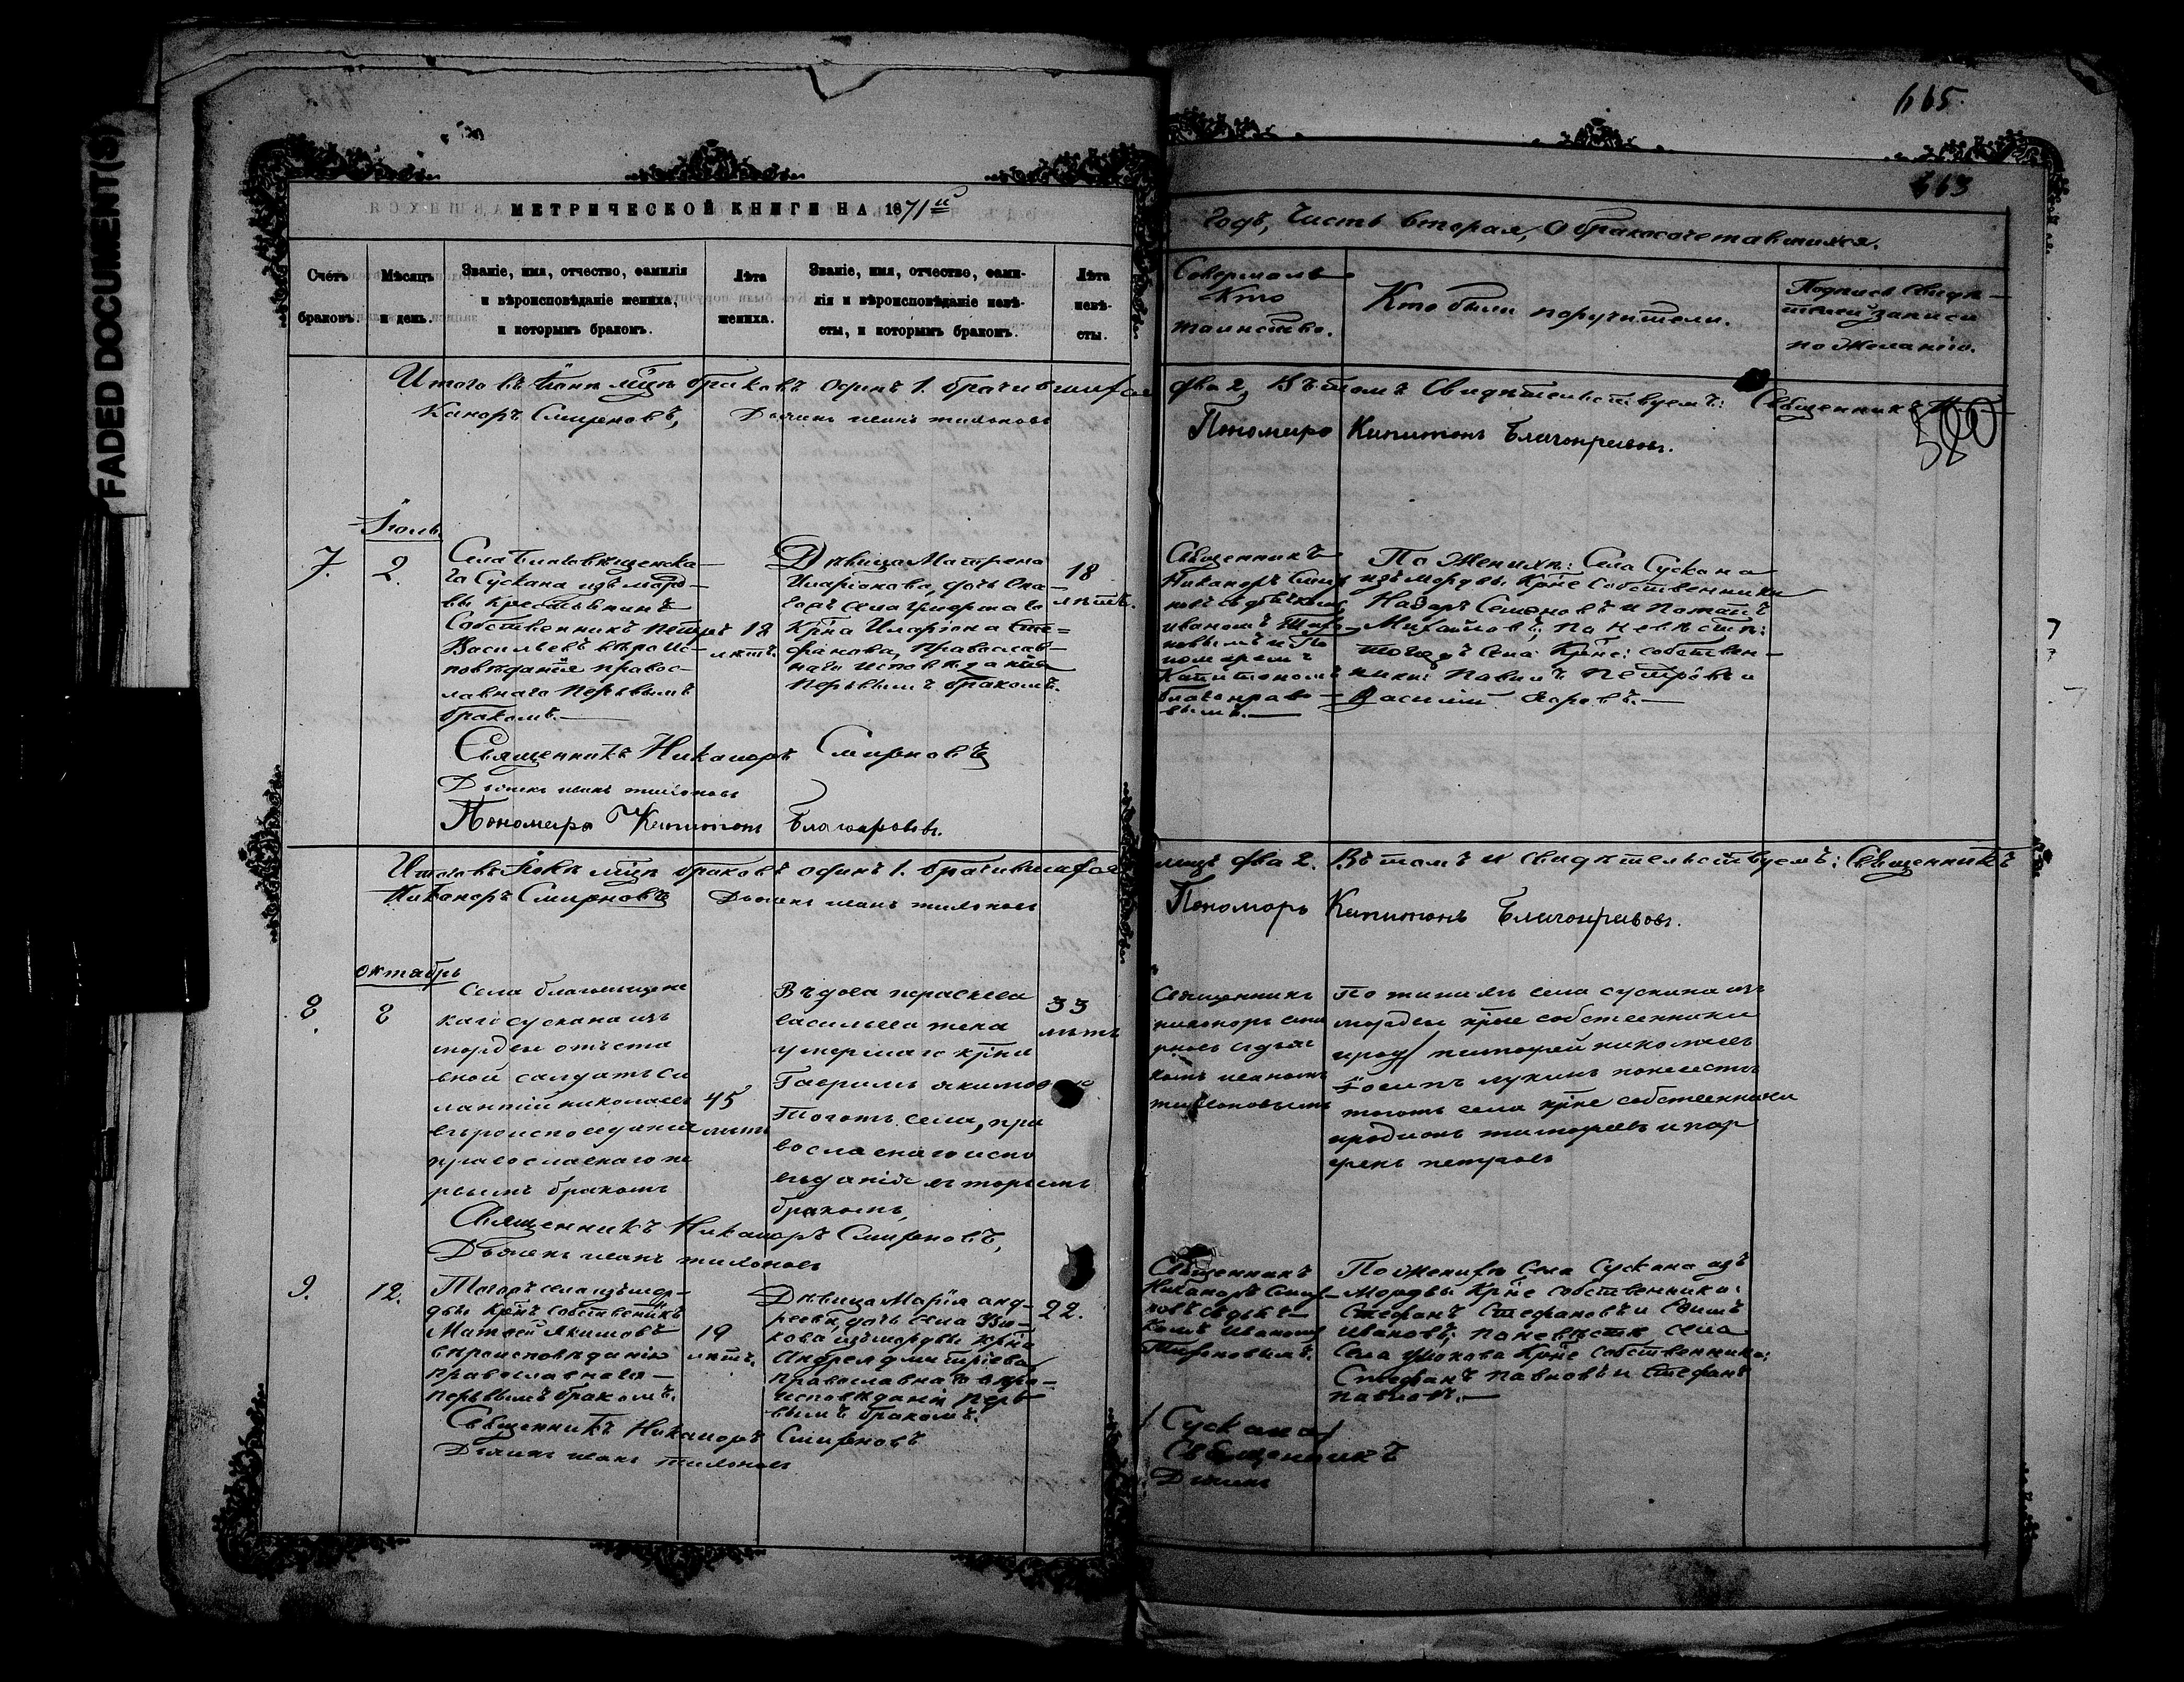 FADED DOCUMENT(S)
665
663
МЕТРИЧЕСКОЙ КНИГИ НА 1871й
Годъ, Часть вторая, О бракосочетавшихся.
Счетъ
браковъ.
Мѣсяцъ
и день.
Званіе, имя, отчество, фамилія
и вѣроисповѣданіе жениха,
и которымъ бракомъ.
Лѣта
жениха.
Званіе, имя, отчество, фами-
лія и вѣроисповѣданіе невѣ-
сты, и которымъ бракомъ.
Лѣта
невѣ-
сты.
Совершалъ
Кто
таинство.
Кто были поручители.
Подпись свидѣ-
телей записи
по желанію.
Итого въ Іюнѣ мцѣ браковъ одинъ 1. брачившихся
два 2, Въ томъ Свидѣтельствуемъ: Священникъ Ни-
каноръ Смирновъ, Дьячекъ Иванъ Тихоновъ
Пономарь Капитонъ Благонравовъ.
580
Іюль.
7.
2.
Села Благовѣщенска-
го Сускана изъ морд-
вы крестьянинъ
Собственникъ Петръ
Васильевъ вѣроис-
повѣданіе правос-
лавнаго первымъ
бракомъ.
18
лѣтъ.
Дѣвица Матрена
Иларіонова, дочь
села умершаго
Крѣна Иларіона Сте-
фанова, Православ-
наго исповѣданія
первымъ бракомъ.
18
лѣтъ.
Священникъ
Никаноръ Смир
новъ съ дьячкомъ
Иваномъ Тихо-
новымъ и По
номаремъ
Капитономъ
Благонраво-
вымъ.
По Женихѣ: Села Сускана
изъ мордвы Крѣне Собственники
Назаръ Семеновъ и Потапъ
Михайловъ; по невѣстѣ:
тогожъ села Крѣне: собствен-
ники: Павелъ Петровъ и
Василій Яровъ.
Священникъ Никаноръ Смирновъ
Дьячекъ Иванъ Тихоновъ
Пономарь Капитонъ Благонравовъ.
Итого въ Іюлѣ мцѣ браковъ одинъ 1. брачившихся
лицъ два 2. Въ томъ и свидѣтельствуемъ: Священникъ
Никаноръ Смирновъ Дьячекъ Иванъ Тихоновъ
Пономарь Капитонъ Благонравовъ.
октябрь
8.
8
Села благовещенс
каго сускана изъ
мордвы отъста
вной салдатъ Си
лантий николаевъ
въроисповедания
православнаго пе
рвымъ бракомъ
45
лѣтъ
Въдова параскева
васильева жена
умершаго крѣна
Гаврилы якимова
Тогожъ села, пра
вославнаго испо
веданія въторымъ
бракомъ,
33
лѣтъ
Священникъ
никаноръ сми
рновъ съдьяч
комъ иваномъ
тихоновымъ
По женихѣ села сускана изъ
мордвы крѣне собственники
тимофей николаевъ
Іосипъ лукинъ поневесты
тогожъ села крѣне собственники
иродионъ тимофеевъ и пар
фенъ петровъ
Священникъ Никаноръ Смирновъ,
Дьячекъ иванъ тихоновъ
9.
12.
Тогожъ села изъ мор-
двы крѣнъ собственникъ
Матвей Якимовъ
вѣроисповѣданія
православнаго
первымъ бракомъ.
19
лѣтъ.
Дѣвица Марія анд-
реева, дочь села
кова изъ мордвы крѣна
Андрея дмитріева
православнаго вѣро-
исповѣданія пер-
вымъ бракомъ.
22.
Священникъ
Никаноръ Смир-
новъ съ дьяч-
комъ Иваномъ
Тихоновымъ.
По женихѣ Села Сускана изъ
Мордвы Крѣне собственники:
Стефанъ Стефановъ и
Ивановъ; по невѣстѣ села
Села Крѣне собственники:
Стефанъ Павловъ и Стефанъ
Павловъ.
Священникъ Никаноръ Смирновъ
Дьячекъ иванъ тихоновъ
(Сускана)
Священникъ
Дьячекъ